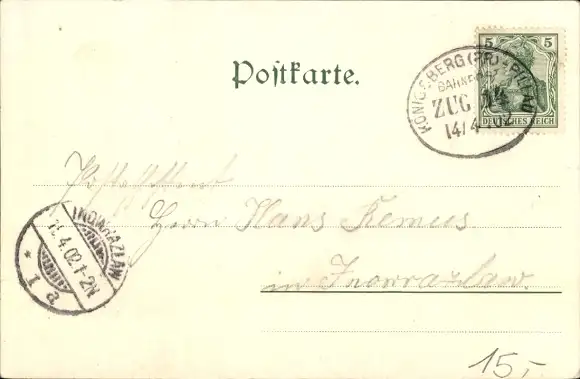 Postkarte.
5 5
DEUTSCHES REICH
KÖNIGSBERG (PR)-PILLAU
BAHNPOST
ZUG 14
14/4 02
Postassistent
Herrn Hans Remus
in Inowrazlaw.
INOWRAZLAW
15.4.02.1-2N
* 1 a
15,-